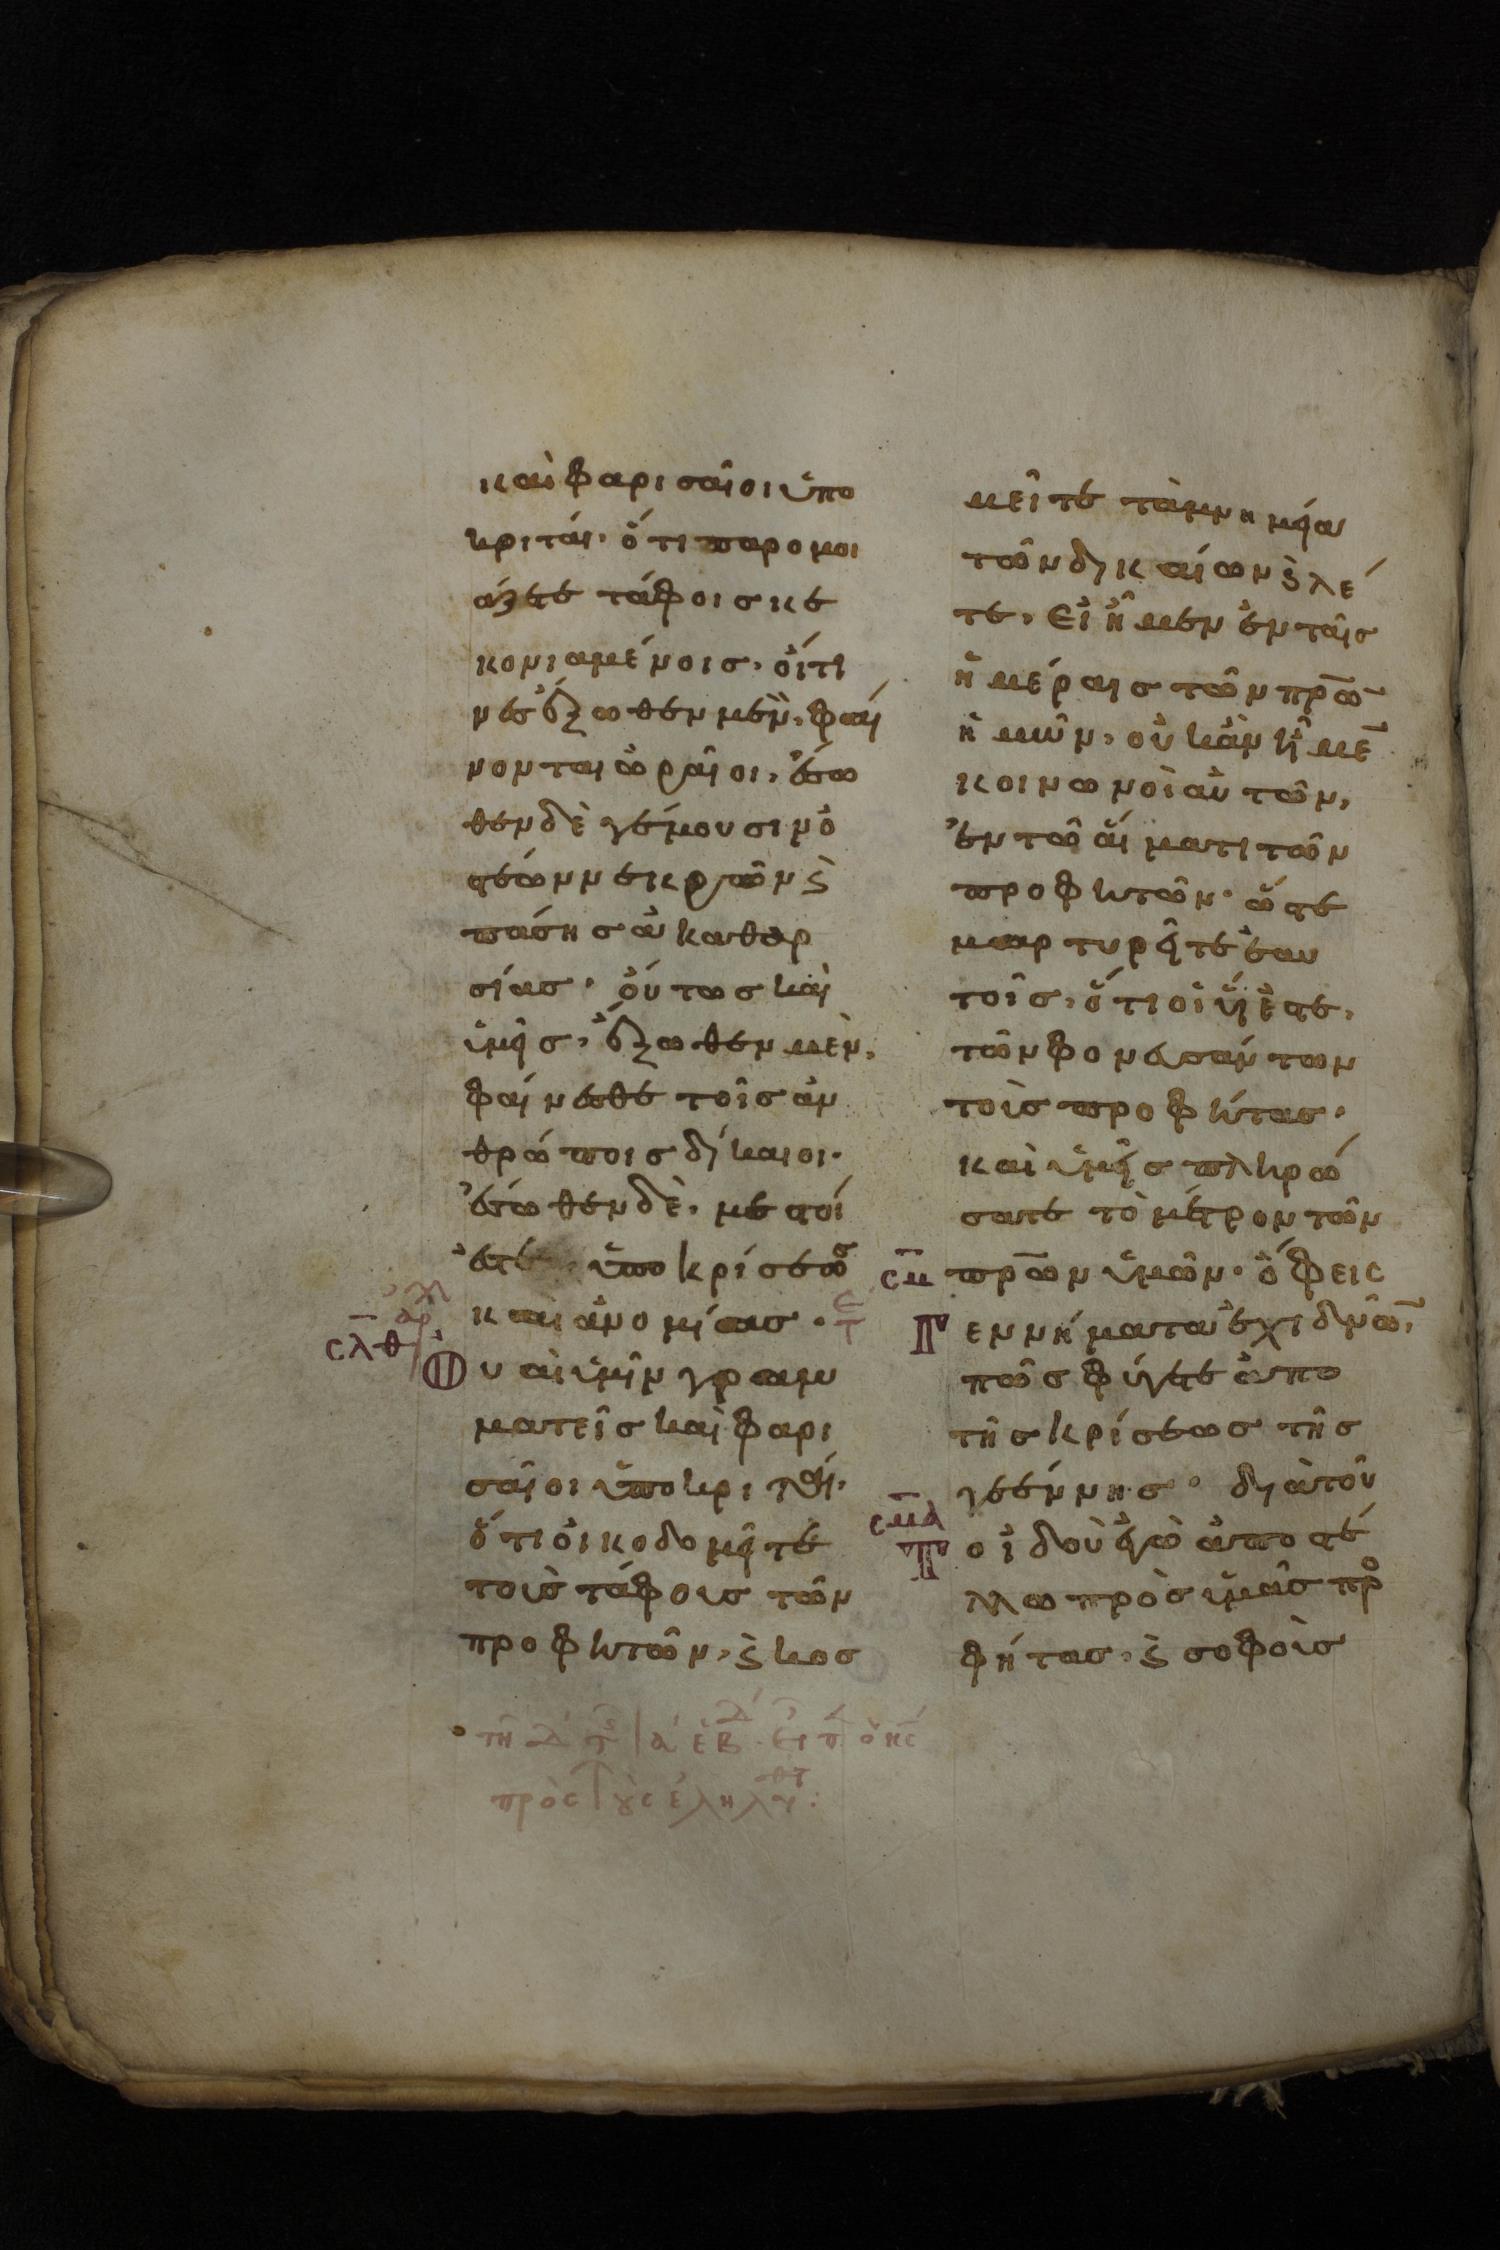 καὶ φαρισαῖοι ὑπο
κριταί· ὅτι παρομοι
άζετε τάφοις κε
κονιαμένοις, οἵτι
νες ἔξωθεν μὲν, φαί
νονται ὡραῖοι, ἔσω
θεν δὲ γέμουσιν ὀ
στέων νεκρῶν ϗ
πάσης ἀκαθαρ
σίας· οὕτως καὶ
ὑμεῖς, ἔξωθεν μὲν,
φαίνεσθε τοῖς ἀν
θρώποις δίκαιοι·
ἔσωθεν δὲ, μεστοί
ἐστε, ὑποκρίσεως
καὶ ἀνομίας·
σλθ
Οὐαὶ ὑμῖν γραμ
ματεῖς καὶ φαρι
σαῖοι ὑποκριταί·
ὅτι οἰκοδομεῖτε
τοὺς τάφους τῶν
προφητῶν, ϗ κοσ
τῆ
πρὸς
μεῖτε τὰ μνημεία
τῶν δικαίων ϗ λέ
τε, Εἰ ἦμεν ἐν ταῖς
ἡμέραις τῶν πρω̅
ἡμῶν, οὐκ ἂν ἦμε̅
κοινωνοὶ αὐτῶν,
ἐν τῶ αἵματι τῶν
προφητῶν· ὥστε
μαρτυρεῖτε ἑαυ
τοῖς, ὅτι οἱ υἱέ ἐστε,
τῶν φονευσάντων
τοὺς προφήτας·
καὶ ὑμεῖς πληρώ
σατε τὸ μέτρον τῶν
σμ πρ̅ων ὑμῶν· ὄφεις
Γεννήματα ἐχιδνῶ̅,
πῶς φύγετε ἀπο
τῆς κρίσεως τῆς
γεέννης· διὰ τοῦ
σμα
Το ἰδοὺ ἐγὼ ἀποστέ
λλω πρὸς ὑμᾶς προ
φήτας, ϗ σοφοὺς